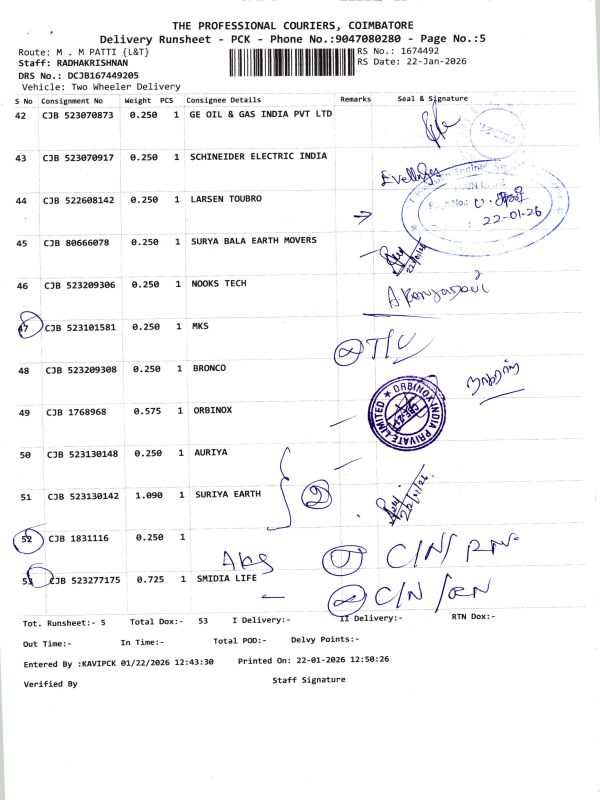 THE PROFESSIONAL COURIERS, COIMBATORE
Delivery Runsheet - PCK - Phone No.:9047080280 - Page No.:5
Route: M . M PATTI {L&T}
RS No.: 1674492
Staff: RADHAKRISHNAN
RS Date: 22-Jan-2026
DRS No.: DCJB167449205
Vehicle: Two Wheeler Delivery
S No Consignment No Weight PCS Consignee Details Remarks Seal & Signature
42 CJB 523070873 0.250 1 GE OIL & GAS INDIA PVT LTD
43 CJB 523070917 0.250 1 SCHINEIDER ELECTRIC INDIA
44 CJB 522608142 0.250 1 LARSEN TOUBRO
22-01-26
45 CJB 80666078 0.250 1 SURYA BALA EARTH MOVERS
46 CJB 523209306 0.250 1 NOOKS TECH
47 CJB 523101581 0.250 1 MKS
48 CJB 523209308 0.250 1 BRONCO
49 CJB 1768968 0.575 1 ORBINOX
ORBINOX INDIA PRIVATE LIMITED
50 CJB 523130148 0.250 1 AURIYA
51 CJB 523130142 1.090 1 SURIYA EARTH
2
52 CJB 1831116 0.250 1
C/N/
53 CJB 523277175 0.725 1 SMIDIA LIFE
C/N/
Tot. Runsheet:- 5 Total Dox:- 53 I Delivery:- II Delivery:- RTN Dox:-
Out Time:- In Time:- Total POD:- Delvy Points:-
Entered By :KAVIPCK 01/22/2026 12:43:30 Printed On: 22-01-2026 12:50:26
Verified By Staff Signature